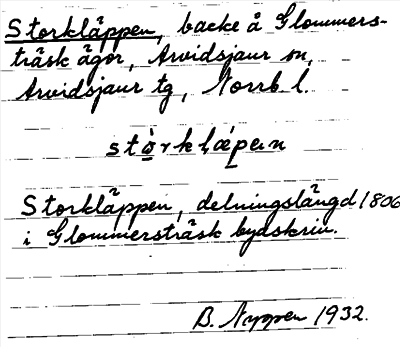 Storkläppen, backe å Glommers-
träsk ägor, Arvidsjaur sn,
Arvidsjaur tg, Norrb. l.
Storkläppen, delningslängd 1806
i Glommersträsk bydskrin.
B. Nyppen 1932.